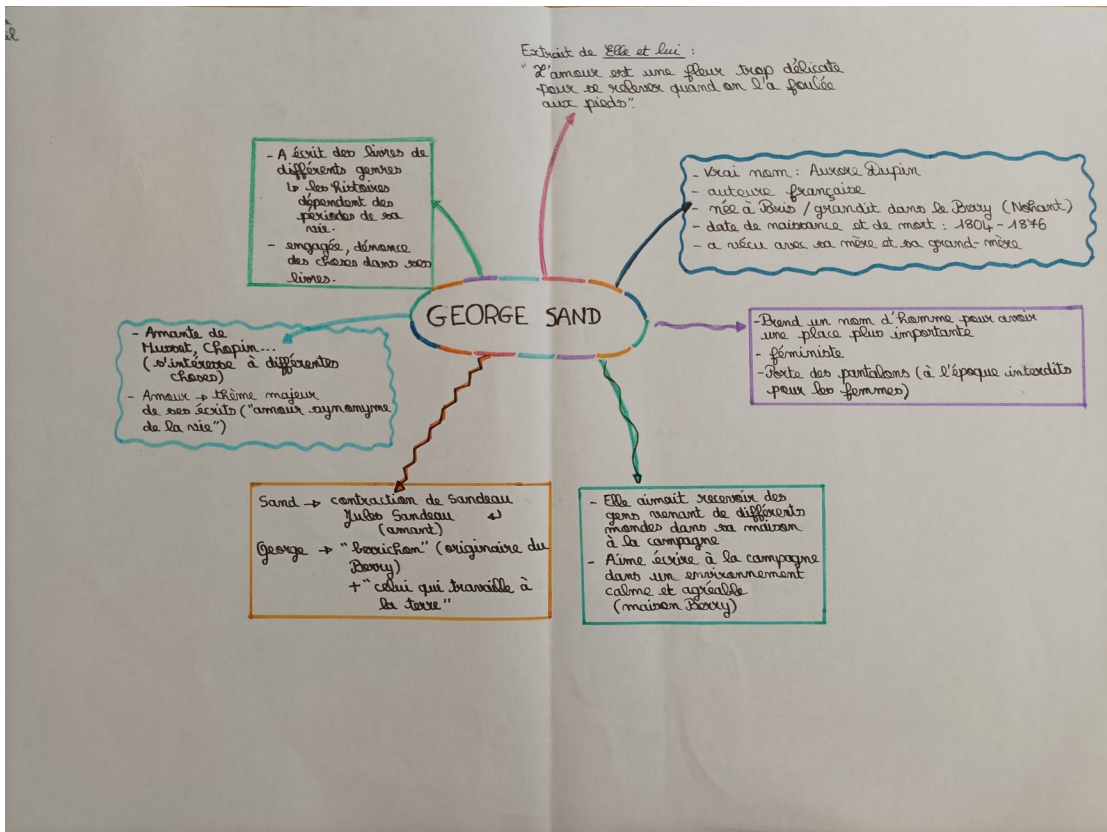 Extrait de Elle et lui :
"L'amour est une fleur trop délicate
pour se relever quand on l'a foulée
aux pieds".
- A écrit des livres de
différents genres
↳ les histoires
dépendent des
périodes de sa
vie.
- engagée, dénonce
des choses dans ses
livres.
- vrai nom : Aurore Dupin
- auteure française
- née à Paris / grandit dans le Berry (Nohant)
- date de naissance et de mort : 1804 - 1876
- a vécu avec sa mère et sa grand-mère
GEORGE SAND
- Amante de
Musset, Chopin...
(s'intéresse à différentes
choses)
- Amour → thème majeur
de ses écrits ("amour synonyme
de la vie")
- Prend un nom d'homme pour avoir
une place plus importante
- féministe
- Porte des pantalons (à l'époque interdits
pour les femmes)
Sand → contraction de Sandeau
Jules Sandeau ↲
(amant)
George → "berrichon" (originaire du
Berry)
+ "celui qui travaille à
la terre"
- Elle aimait recevoir des
gens venant de différents
mondes dans sa maison
à la campagne
- Aime écrire à la campagne
dans un environnement
calme et agréable
(maison Berry)